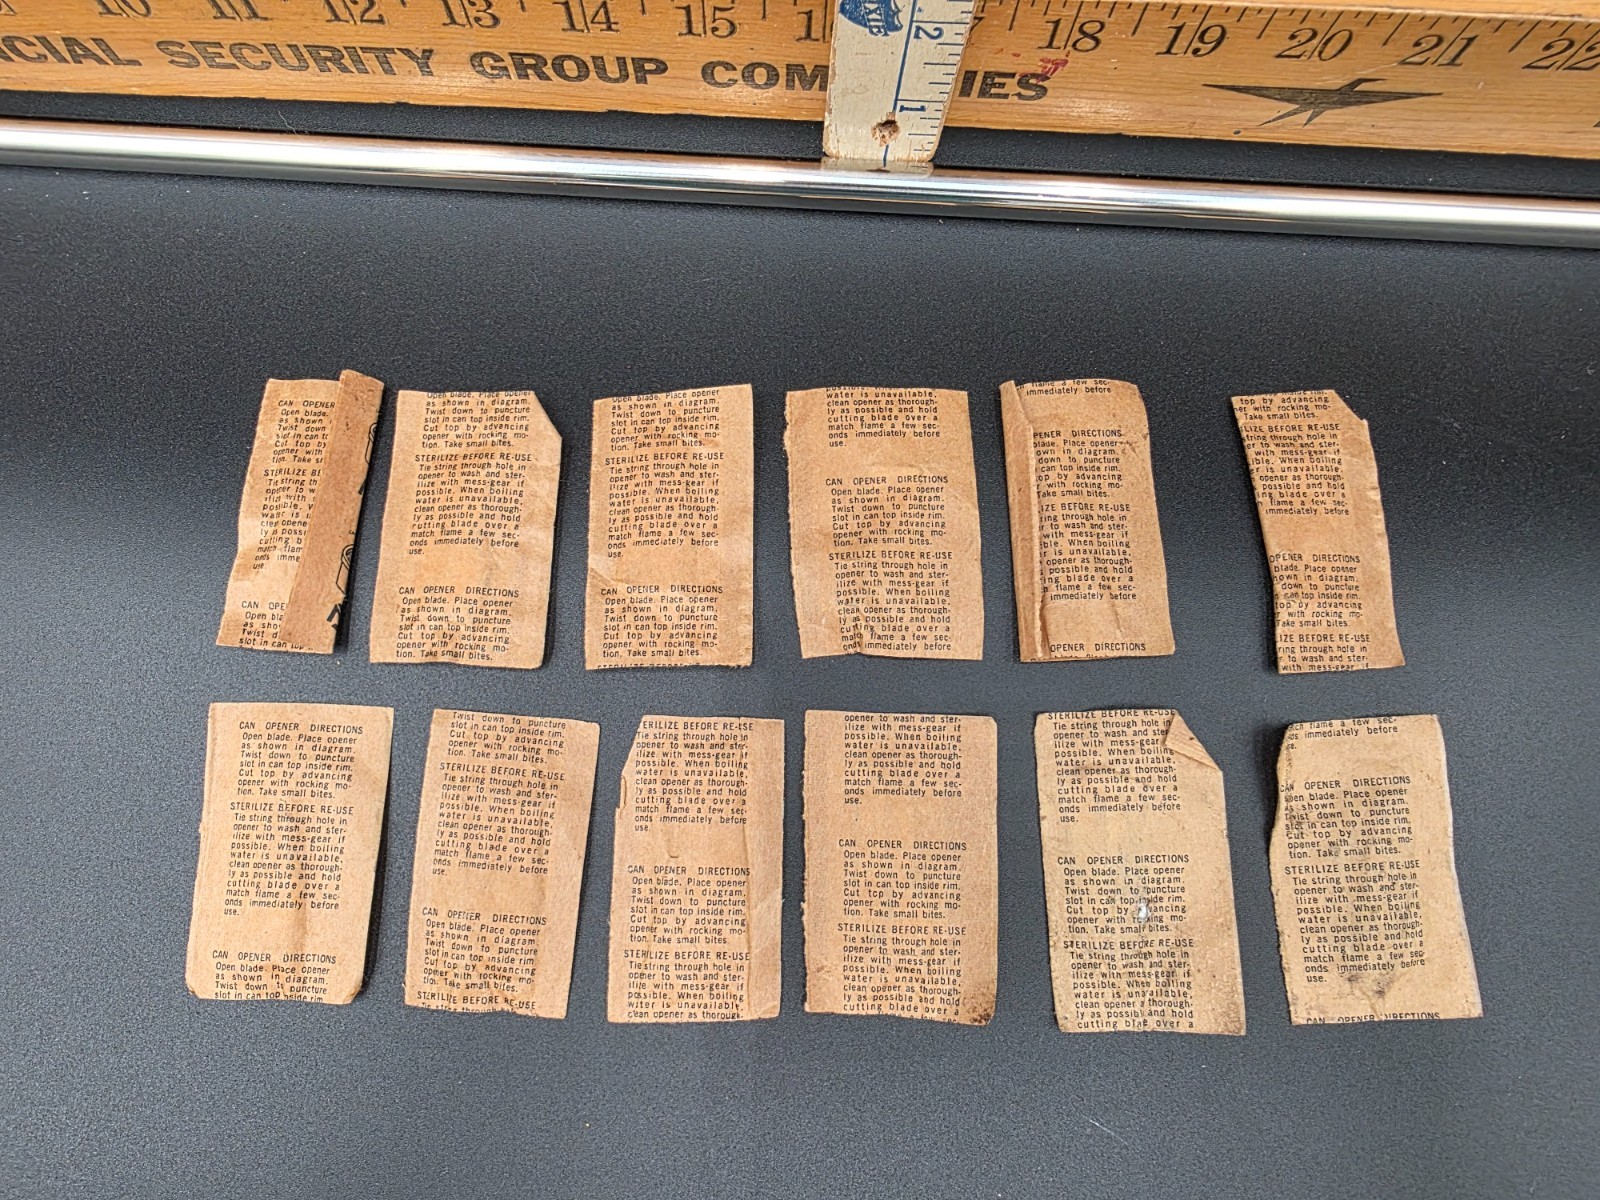 10 11 12 13 14 15 18 19 20 21 22
NCIAL SECURITY GROUP COM IES
2
1
CAN OPENER
Open blade.
as shown
Twist down
slot in can t
Cut top by
opener with
tion. Take s
STERILIZE BE
Tie string th
opener to w
ilize with
possible. W
water is u
clean opene
ly as possi
cutting b
match flam
onds imme
use.
CAN OPE
Open bla
as sho
Twist d
slot in can top
Open blade. Place opener
as shown in diagram.
Twist down to puncture
slot in can top inside rim.
Cut top by advancing
opener with rocking mo-
tion. Take small bites.
STERILIZE BEFORE RE-USE
Tie string through hole in
opener to wash and ster-
ilize with mess-gear if
possible. When boiling
water is unavailable,
clean opener as thorough-
ly as possible and hold
cutting blade over a
match flame a few sec-
onds immediately before
use.
CAN OPENER DIRECTIONS
Open blade. Place opener
as shown in diagram.
Twist down to puncture
slot in can top inside rim.
Cut top by advancing
opener with rocking mo-
tion. Take small bites.
Open blade. Place opener
as shown in diagram.
Twist down to puncture
slot in can top inside rim.
Cut top by advancing
opener with rocking mo-
tion. Take small bites.
STERILIZE BEFORE RE-USE
Tie string through hole in
opener to wash and ster-
ilize with mess-gear if
possible. When boiling
water is unavailable,
clean opener as thorough-
ly as possible and hold
cutting blade over a
match flame a few sec-
onds immediately before
use.
CAN OPENER DIRECTIONS
Open blade. Place opener
as shown in diagram.
Twist down to puncture
slot in can top inside rim.
Cut top by advancing
opener with rocking mo-
tion. Take small bites.
STERILIZE BEFORE RE-USE
possible. When boiling
water is unavailable,
clean opener as thorough-
ly as possible and hold
cutting blade over a
match flame a few sec-
onds immediately before
use.
CAN OPENER DIRECTIONS
Open blade. Place opener
as shown in diagram.
Twist down to puncture
slot in can top inside rim.
Cut top by advancing
opener with rocking mo-
tion. Take small bites.
STERILIZE BEFORE RE-USE
Tie string through hole in
opener to wash and ster-
ilize with mess-gear if
possible. When boiling
water is unavailable,
clean opener as thorough-
ly as possible and hold
cutting blade over a
match flame a few sec-
onds immediately before
flame a few sec-
immediately before
PENER DIRECTIONS
blade. Place opener
own in diagram.
down to puncture
can top inside rim.
top by advancing
r with rocking mo-
Take small bites.
IZE BEFORE RE-USE
ring through hole in
r to wash and ster-
with mess-gear if
ble. When boiling
r is unavailable,
opener as thorough-
s possible and hold
ing blade over a
flame a few sec-
immediately before
OPENER DIRECTIONS
top by advancing
er with rocking mo-
Take small bites.
ILIZE BEFORE RE-USE
tring through hole in
er to wash and ster-
with mess-gear if
ble. When boiling
er is unavailable,
opener as thorough-
possible and hold
ing blade over a
flame a few sec-
immediately before
OPENER DIRECTIONS
blade. Place opener
own in diagram.
down to puncture
can top inside rim.
top by advancing
er with rocking mo-
Take small bites.
IZE BEFORE RE-USE
ring through hole in
r to wash and ster-
with mess-gear if
CAN OPENER DIRECTIONS
Open blade. Place opener
as shown in diagram.
Twist down to puncture
slot in can top inside rim.
Cut top by advancing
opener with rocking mo-
tion. Take small bites.
STERILIZE BEFORE RE-USE
Tie string through hole in
opener to wash and ster-
ilize with mess-gear if
possible. When boiling
water is unavailable,
clean opener as thorough-
ly as possible and hold
cutting blade over a
match flame a few sec-
onds immediately before
use.
CAN OPENER DIRECTIONS
Open blade. Place opener
as shown in diagram.
Twist down to puncture
slot in can top inside rim
Twist down to puncture
slot in can top inside rim.
Cut top by advancing
opener with rocking mo-
tion. Take small bites.
STERILIZE BEFORE RE-USE
Tie string through hole in
opener to wash and ster-
ilize with mess-gear if
possible. When boiling
water is unavailable,
clean opener as thorough-
ly as possible and hold
cutting blade over a
match flame a few sec-
onds immediately before
use.
CAN OPENER DIRECTIONS
Open blade. Place opener
as shown in diagram.
Twist down to puncture
slot in can top inside rim.
Cut top by advancing
opener with rocking mo-
tion. Take small bites.
STERILIZE BEFORE RE-USE
ERILIZE BEFORE RE-USE
Tie string through hole in
opener to wash and ster-
ilize with mess-gear if
possible. When boiling
water is unavailable,
clean opener as thorough-
ly as possible and hold
cutting blade over a
match flame a few sec-
onds immediately before
use.
CAN OPENER DIRECTIONS
Open blade. Place opener
as shown in diagram.
Twist down to puncture
slot in can top inside rim.
Cut top by advancing
opener with rocking mo-
tion. Take small bites.
STERILIZE BEFORE RE-USE
Tie string through hole in
opener to wash and ster-
ilize with mess-gear if
possible. When boiling
water is unavailable,
clean opener as thorough-
opener to wash and ster-
ilize with mess-gear if
possible. When boiling
water is unavailable,
clean opener as thorough-
ly as possible and hold
cutting blade over a
match flame a few sec-
onds immediately before
use.
CAN OPENER DIRECTIONS
Open blade. Place opener
as shown in diagram.
Twist down to puncture
slot in can top inside rim.
Cut top by advancing
opener with rocking mo-
tion. Take small bites.
STERILIZE BEFORE RE-USE
Tie string through hole in
opener to wash and ster-
ilize with mess-gear if
possible. When boiling
water is unavailable,
clean opener as thorough-
ly as possible and hold
cutting blade over a
STERILIZE BEFORE RE-USE
Tie string through hole in
opener to wash and ster
ilize with mess-gear if
possible. When boiling
water is unavailable,
clean opener as thorough-
ly as possible and hold
cutting blade over a
match flame a few sec-
onds immediately before
use.
CAN OPENER DIRECTIONS
Open blade. Place opener
as shown in diagram.
Twist down to puncture
slot in can top inside rim.
Cut top by advancing
opener with rocking mo-
tion. Take small bites.
STERILIZE BEFORE RE-USE
Tie string through hole in
opener to wash and ster-
ilize with mess-gear if
possible. When boiling
water is unavailable,
clean opener as thorough-
ly as possible and hold
cutting blade over a
flame a few sec-
onds immediately before
se.
CAN OPENER DIRECTIONS
Open blade. Place opener
as shown in diagram.
Twist down to puncture
slot in can top inside rim.
Cut top by advancing
opener with rocking mo-
tion. Take small bites.
STERILIZE BEFORE RE-USE
Tie string through hole in
opener to wash and ster-
ilize with mess-gear if
possible. When boiling
water is unavailable,
clean opener as thorough-
ly as possible and hold
cutting blade over a
match flame a few sec-
onds immediately before
use.
CAN OPENER DIRECTIONS